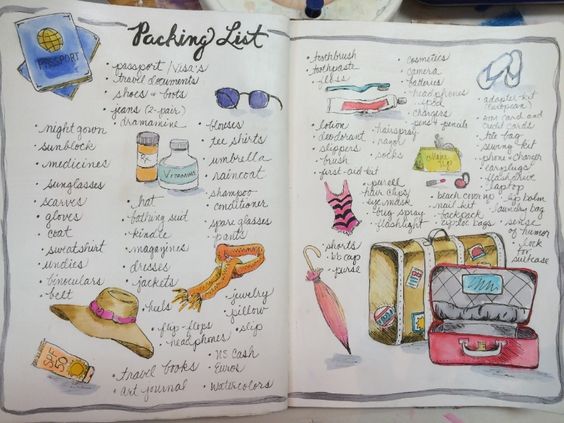 Packing List
PASSPORT
• passport/Visa's
• travel documents
• shoes + boots
• jeans (2-pair)
• dramamine
• night gown
• sunblock
• medicines
• sunglasses
• scarves
• gloves
coat
• sweatshirt
• undies
• binoculars
• belt
VITAMINS
• hat
• bathing suid
• kindle
• magazines
• dresses
• jackets
• heels
• flip-flops
• headphones
• blouses
• tee shirts
• umbrella
• raincoat
• shampoo
conditioner
• spare glasses
• pants
• jewelry
• pillow
• slip
• US cash
• Euros
• watercolors
• travel books
• art journal
SPF
50
• toothbrush
toothpaste
floss
• cosmetics
• camera
• batteries
• headphones
• chargers
• pens + pencils
• adapter kit
• tote bag
• sewing kit
• phone + charger
• earplugs
• laptop
• lip balm
• laundry bag
• sense
of humor
• lock
for
suitcase
• lotion
• deodorant
• slippers
• brush
• first-aid-kit
• hairspray
• razor
• socks
• purell
• hair clips
• eye mask
• bug spray
• flashlight
• beach coverup
• nail kit
• backpack
• ziploc bags
• shorts
• purse